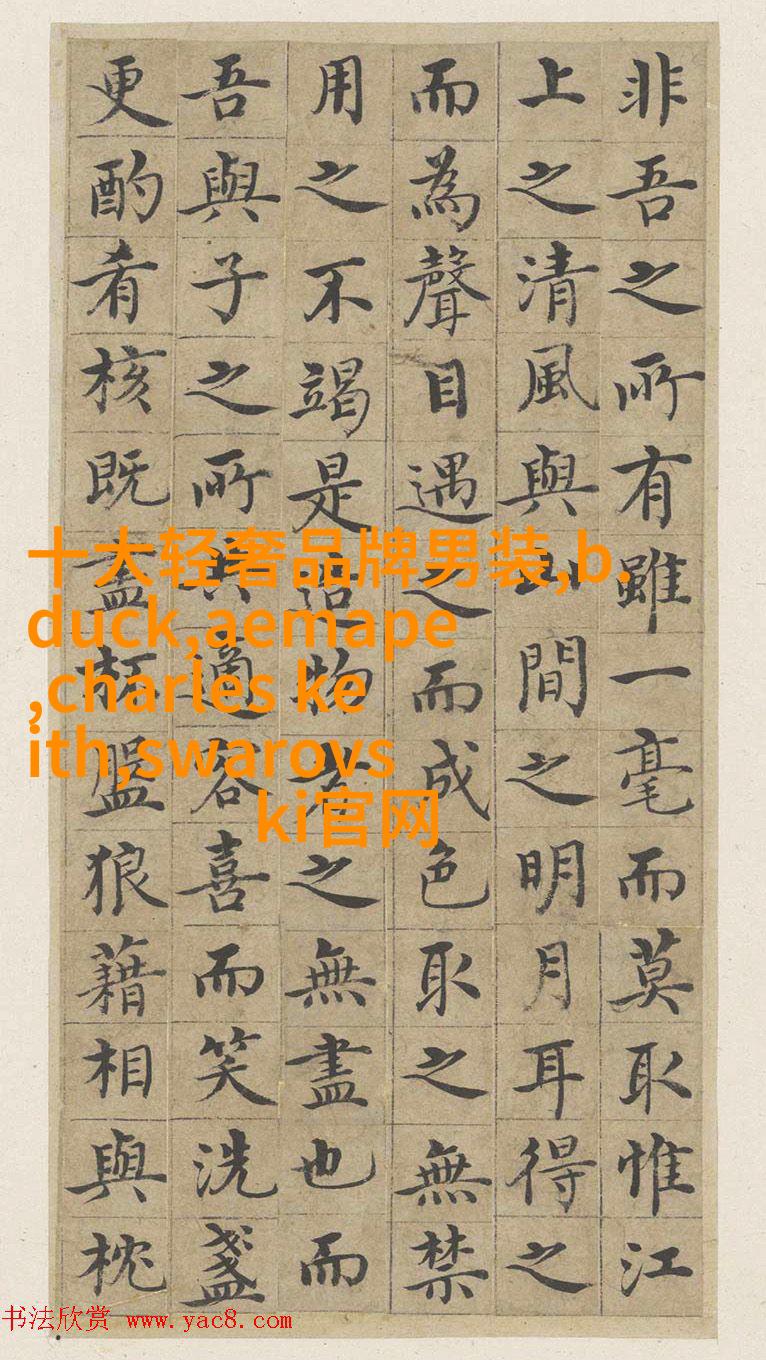 非吾之所有雖一毫而莫取惟江
上之清風與山間之明月耳得之
而為聲目遇之而成色取之無禁
用之不竭是造物者之無盡也而
吾與子之所共適客喜而笑洗盞
更酌肴核既盡杯盤狼藉相與枕
十大轻奢品牌男装,b.
duck,aemape
,charles ke
ith,swarovs
ki官网
书法欣赏 www.yac8.com